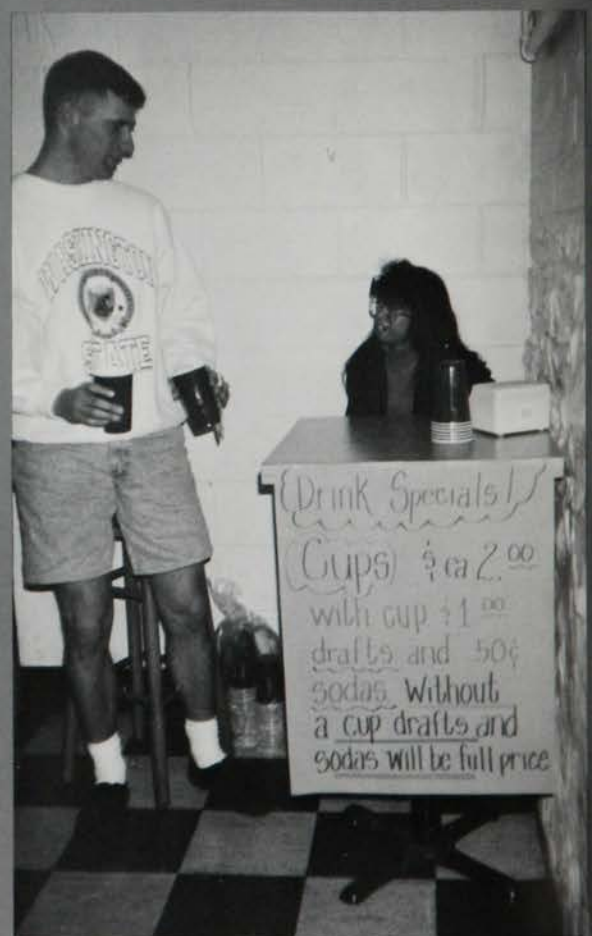 WASHINGTON
STATE
Drink Specials!
(Cups) $ ea 2.00
with cup $1 00
drafts and 50¢
sodas. Without
a cup drafts and
sodas will be full price